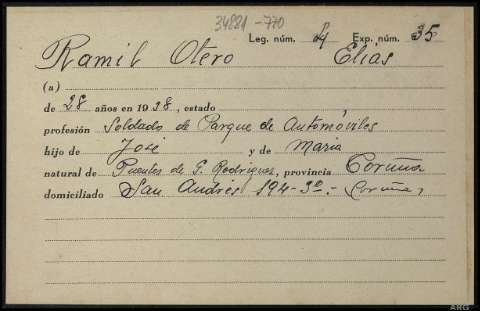 34881-770
Leg. núm. 4 Exp. núm. 35
Ramil Otero Elias
(a)
de 28 años en 1938, estado
profesión Soldado de Parque de Automóviles
hijo de José y de Maria
natural de Puentes de G. Rodriguez, provincia Coruña
domiciliado San Andrés 194-3º.- Coruña,
ARG